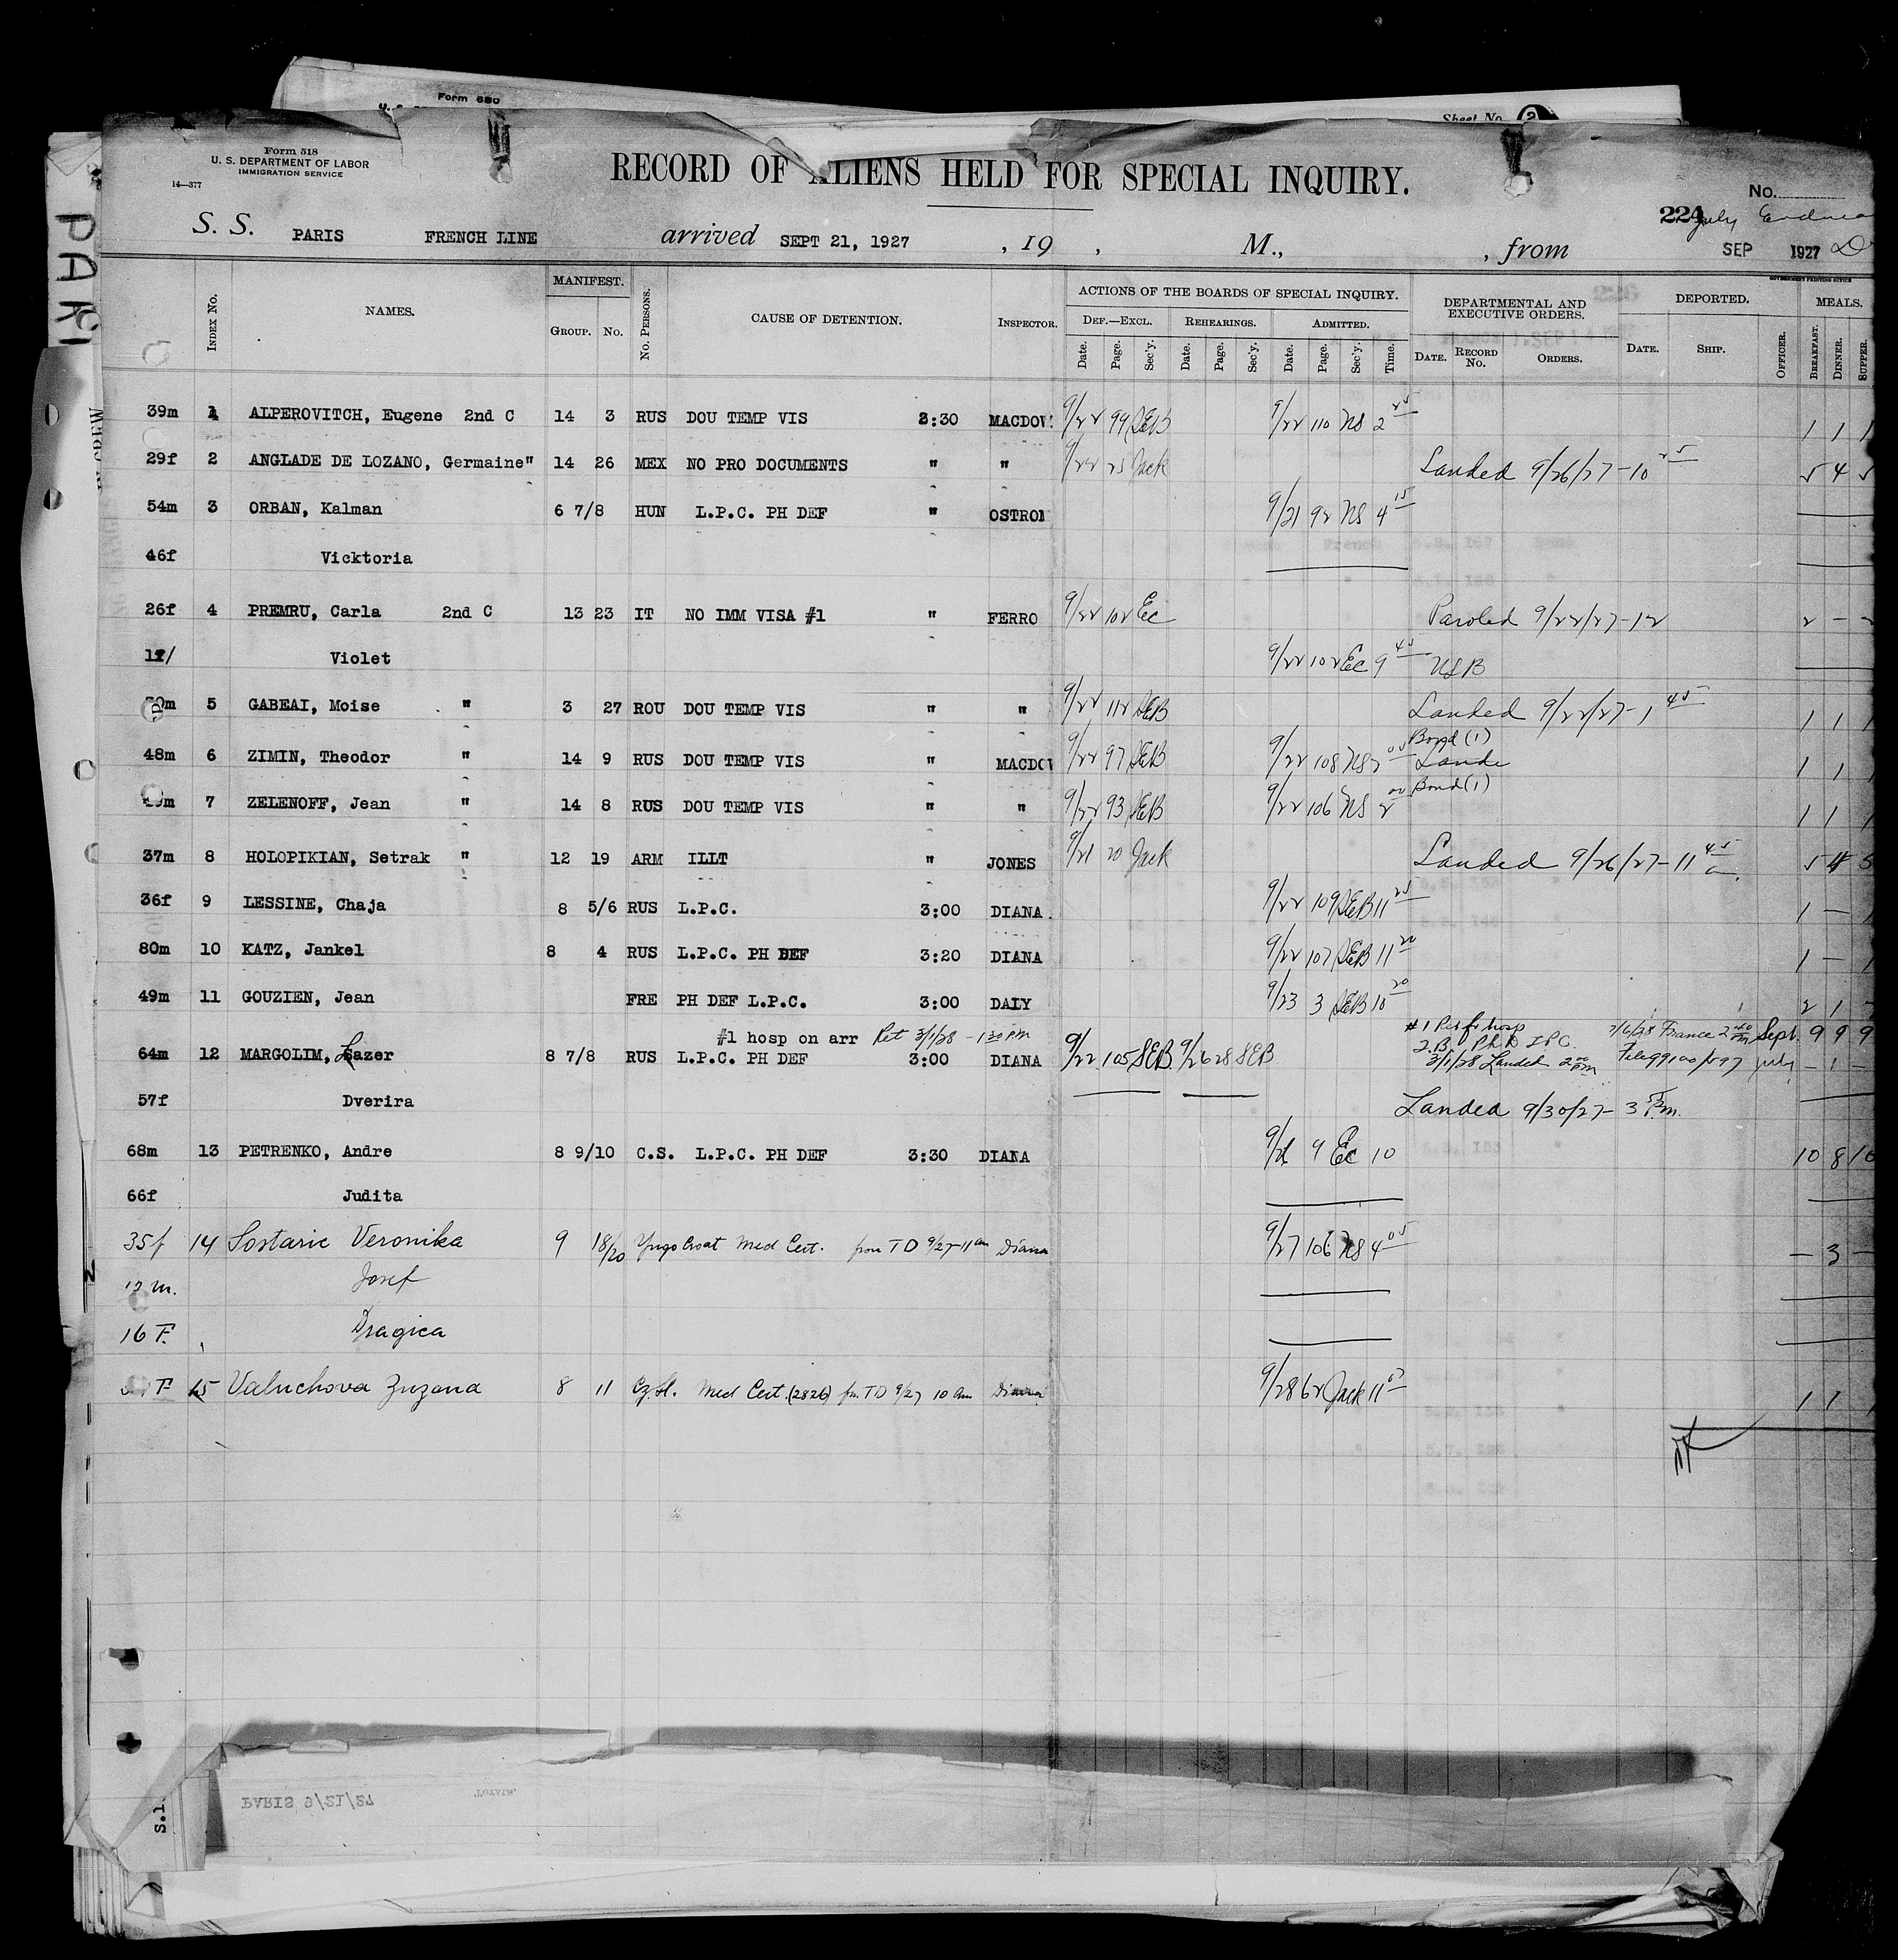 Form 680
Sheet No. 2
Form 518
U. S. DEPARTMENT OF LABOR
IMMIGRATION SERVICE
14—377
RECORD OF ALIENS HELD FOR SPECIAL INQUIRY.
No.
224
S. S. PARIS FRENCH LINE arrived SEPT 21, 1927 , 19 , M., , from SEP 1927
PARI
GOVERNMENT PRINTING OFFICE
Index No. NAMES. MANIFEST. GROUP. No. No. PERSONS. CAUSE OF DETENTION. INSPECTOR. ACTIONS OF THE BOARDS OF SPECIAL INQUIRY. DEF.—EXCL. Date. Page. Sec'y. REHEARINGS. Date. Page. Sec'y. ADMITTED. Date. Page. Sec'y. Time. DEPARTMENTAL AND EXECUTIVE ORDERS. DATE. RECORD No. ORDERS. DEPORTED. DATE. SHIP. OFFICER. MEALS. BREAKFAST. DINNER. SUPPER.
39m 1 ALPEROVITCH, Eugene 2nd C 14 3 RUS DOU TEMP VIS 2:30 MACDOW 9/22 99 SEB 9/22 110 NS 2 25 1 1 1
29f 2 ANGLADE DE LOZANO, Germaine " 14 26 MEX NO PRO DOCUMENTS " " 9/22 25 Jack Landed 9/26/27-10 25 5 4 5
54m 3 ORBAN, Kalman 6 7/8 HUN L.P.C. PH DEF " OSTROM 9/21 92 NS 4 15
46f Vicktoria
26f 4 PREMRU, Carla 2nd C 13 23 IT NO IMM VISA #1 " FERRO 9/22 102 EC Paroled 9/22/27-12 2 –
Violet 9/22 102 EC 9 45 USB
5 GABEAI, Moise " 3 27 ROU DOU TEMP VIS " " 9/22 112 SEB Landed 9/22/27-1 45 1 1 1
Bond (1)
48m 6 ZIMIN, Theodor " 14 9 RUS DOU TEMP VIS " MACDO 9/22 97 SEB 9/22 108 NS 2 00 Lande 1 1 1
7 ZELENOFF, Jean " 14 8 RUS DOU TEMP VIS " " 9/22 93 SEB 9/22 106 NS 2 00 Bond (1) 1 1 1
37m 8 HOLOPIKIAN, Setrak " 12 19 ARM ILLT " JONES 9/21 20 Jack Landed 9/26/27-11 45 a. 5 4 5
36f 9 LESSINE, Chaja 8 5/6 RUS L.P.C. 3:00 DIANA 9/22 109 SEB 11 25 1 – 1
80m 10 KATZ, Jankel 8 4 RUS L.P.C. PH DEF 3:20 DIANA 9/22 107 SEB 11 20 1 – 1
49m 11 GOUZIEN, Jean FRE PH DEF L.P.C. 3:00 DALY 9/23 3 SEB 10 20 2 1
#1 hosp on arr Ret 3/1/28 - 1 30 PM
64m 12 MARGOLIM, Lazer 8 7/8 RUS L.P.C. PH DEF 3:00 DIANA 9/22 105 SEB 9/26 28 SEB 3/1/28 Landed 2 00 PM France Sept. 9 9 9
July – 1 –
57f Dverira Landed 9/30/27- 3 P.m.
68m 13 PETRENKO, Andre 8 9/10 C.S. L.P.C. PH DEF 3:30 DIANA 9 EC 10 10 8 10
66f Judita
35f 14 Sostaric Veronika 9 18/20 Yugo Croat Med Cert. from TD 9/27-11 am Diana 9/27 106 NS 4 05 – 3 –
m. Josef
16 F. Dragica
F 15 Valuchova Zuzana 8 11 Cz.Sl. Med Cert. (2826) fr. TD 9/27 10 am Diana 9/28 62 Jack 11 1 1
PARIS 9/21/27
TOTALS.